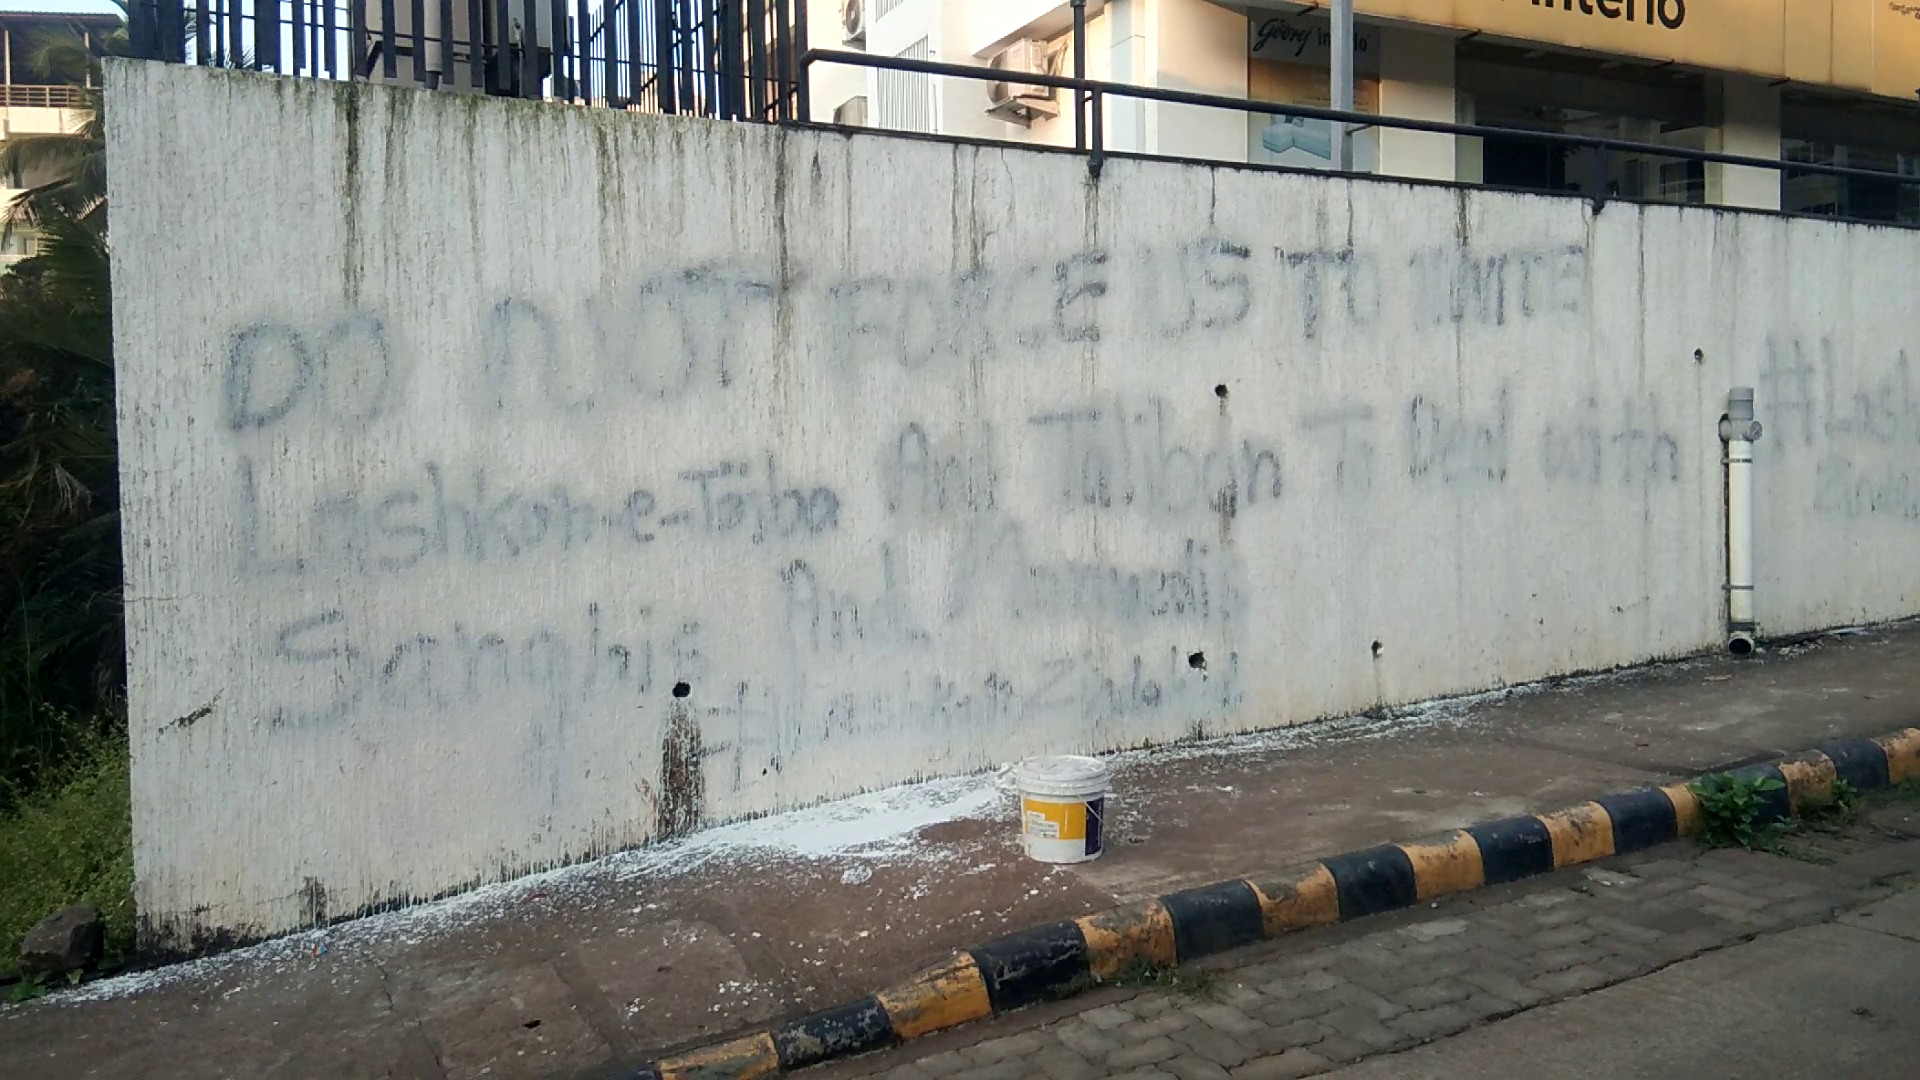 interio
Godrej interio
DO NOT FORCE US TO INVITE
Lashkar-e-Toiba And Taliban To Deal with
Sanghis And Manvedis
#Lashkar Zindabad
#Lash